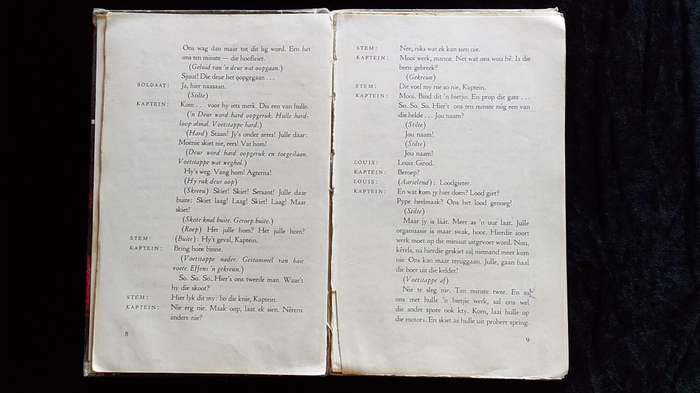 Ons wag dan maar tot dit lig word. Ers het
ons ten minste — die hoofleier.
(Geluid van 'n deur wat oopgaan.)
Sjuut! Die deur het oopgegaan ...
SOLDAAT: Ja, hier naaaaan.
(Stilte)
KAPTEIN: Kom ... voor hy iets merk. Dis een van hulle.
('n Deur word hard oopgeruk. Hulle hard-
loop almal. Voetstappe hard.)
(Hard) Staan! Jy's onder arres! Julle daar:
Moenie skiet nie, eers! Vat hom!
(Deur word hard oopgeruk en toegeslaan.
Voetstappe wat weghol.)
Hy's weg. Vang hom! Agterna!
(Hy ruk deur oop)
(Skreeu) Skiet! Skiet! Sersant! Julle daar
buite: Skiet laag! Laag! Skiet! Laag! Maar
skiet!
(Skote knal buite. Geroep buite.)
(Roep) Het julle hom? Het julle hom?
STEM: (Buite): Hy't geval, Kaptein.
KAPTEIN: Bring hom binne.
(Voetstappe nader. Gestommel van baie
voete. Effens 'n gekreun.)
So. So. So, Hier's ons tweede man. Waar't
hy die skoot?
STEM: Hier lyk dit my: bo die knie, Kaptein.
KAPTEIN: Nie erg nie. Maak oop, laat ek sien. Nêrens
anders nie?
8
STEM: Nee, niks wat ek kan sien nie.
KAPTEIN: Mooi werk, manne. Net wat ons wou hê. Is die
been gebreek?
(Gekreun)
STEM: Dit voel my nie so nie, Kaptein.
KAPTEIN: Mooi. Bind dit 'n bietjie. En prop die gate ...
So. So. So. Hier't ons ten minste nóg een van
die helde ... Jou naam?
(Stilte)
Jou naam!
(Stilte)
Jou naam!
LOUIS: Louis Girod.
KAPTEIN: Beroep?
LOUIS: (Aarselend): Loodgieter.
KAPTEIN: En wat kom jy hier doen? Lood giet?
Pype heelmaak? Ons het lood genoeg!
(Stilte)
Maar jy is láát. Meer as 'n uur laat. Julle
organisasie is maar swak, hoor. Hierdie soort
werk moet op die minuut uitgevoer word. Nou,
kêrels, ná hierdie geskiet sal niemand meer kom
nie. Ons kan maar teruggaan. Julle, gaan haal
die boer uit die kelder!
(Voetstappe af)
Nie te sleg nie. Ten minste twee. En as
ons met hulle 'n bietjie werk, sal ons wel
die ander spore ook kry. Kom, laai hulle op
die motors. En skiet as hulle uit probeer spring.
9